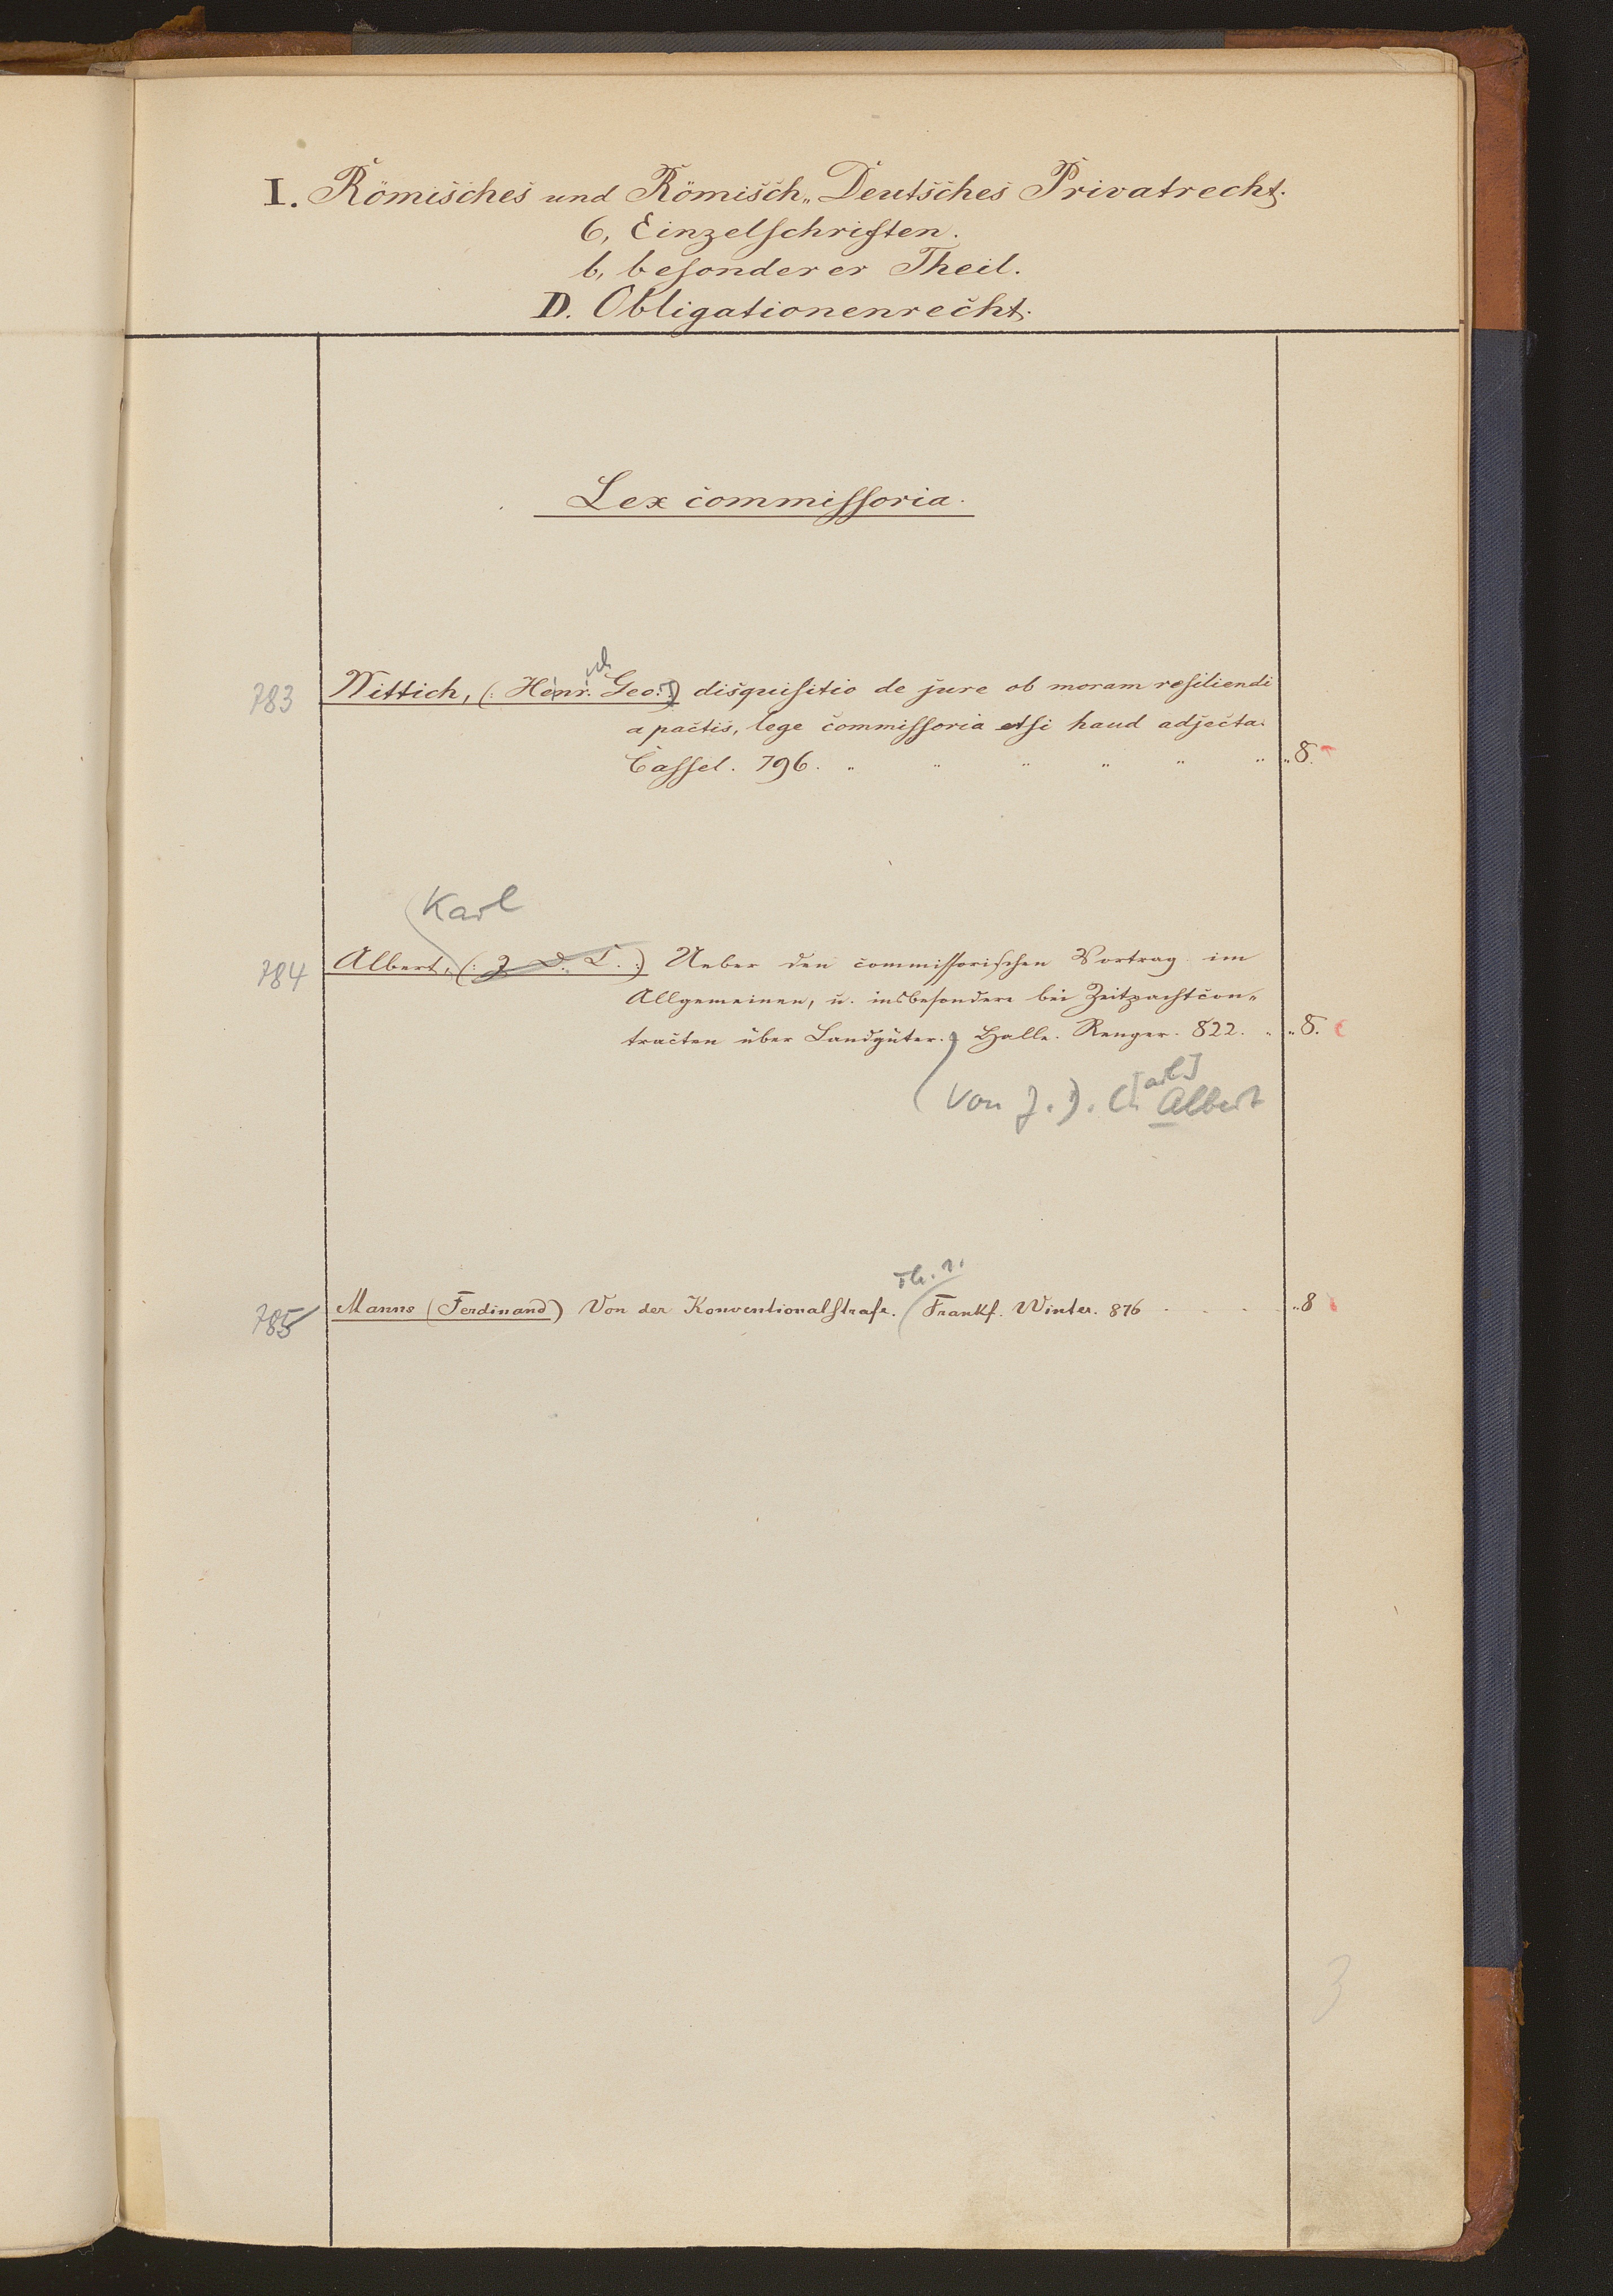 I. Römisches und Römisch„ Deutsches Privatrecht.
6, Einzelschriften.
b, besonderer Theil.
D. Obligationenrecht.
Lex commissoria.
783 Wittich, (: Henr. Geo. :) disquisitio de jure ob moram resiliendi
a pactis, lege commissoria etsi haud adjecta.
Cassel. 796. „ „ „ „ „ „ „ 8.
Karl
784 Albert, (: J. D. C. :) Ueber den commissorischen Vortrag im
Allgemeinen, u. insbesondere bei Zeitpachtcon„
tracten über Landgüter. Halle. Renger. 822. „ „ 8.
[arl]
Von J. D. C. Albert
Th. 1.
785 Manns (Ferdinand) Von der Konventionalstrafe. Frankf. Winter. 876 . . . . „ 8
3